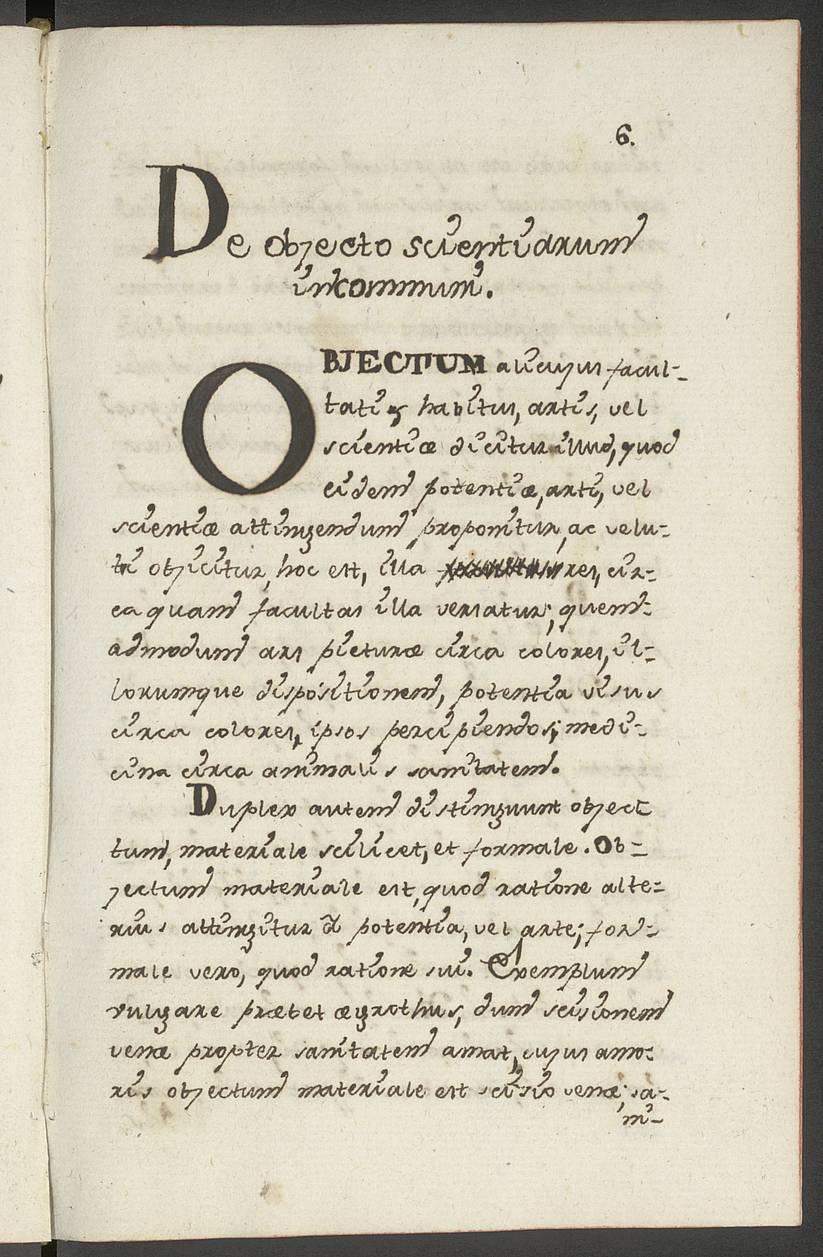 6.
De objecto scientiarum
in communi.
OBJECTUM alicujus facul-
tatis, habitus, artis, vel
scientiæ dicitur illud, quod
eidem potentiæ, arti, vel
scientiæ attingendum proponitur, ac velu-
ti objicitur, hoc est, illa res, cir-
ca quam facultas illa versatur; quem-
admodum ars picturæ circa colores, il-
lorumque dispositionem, potentia visus
circa colores, ipsos percipiendos; medi-
cina circa animalis sanitatem.
Duplex autem distinguunt object
tum, materiale scilicet, et formale. Ob-
jectum materiale est, quod ratione alte-
rius attingitur à potentia, vel arte; for-
male vero, quod ratione sui. Exemplum
vulgare præbet ægrothus, dum scisionem
venæ propter sanitatem amat, cujus amo-
ris objectum materiale est scisio venæ; sa-
ni-